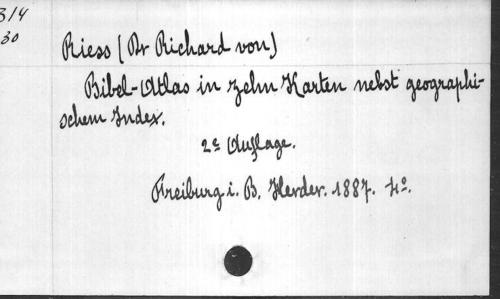 314
30
Riess (Dr Richard von)
Bibel-Atlas in zehn Karten nebst geographi-
schem Index.
2e Auflage.
Freiburg i. B. Herder. 1887. 4o.